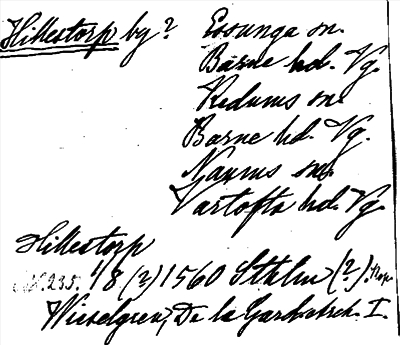 Hillestorp by? Essunga sn.
Barne hd. Vg.
Kedums sn.
Barne hd. Vg.
Naums sn.
Vartofta hd. Vg.
Hillestorp
N. 235. 1/8 (?) 1560 Sthlm (?).
Wieselgren, De la Gardiarch. I.